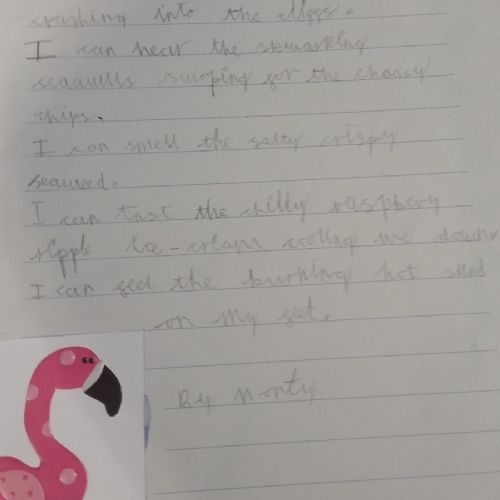 crashing into the cliggs.
I can hear the skwarking
seagulls swoping for the cheasy
chips.
I can smell the salty crispy
seaweed.
I can tast the chilly raspbery
ripple ice-cream cooling me down
I can geel the burning hot sand
on my geet.
By Monty